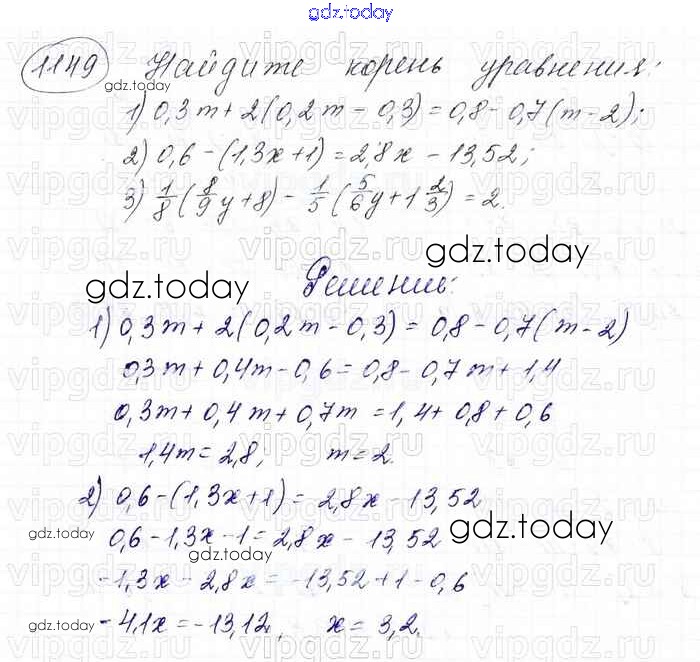 gdz.today
1149 Найдите корень уравнения:
gdz.today
1) 0,3m + 2(0,2m - 0,3) = 0,8 - 0,7(m - 2);
2) 0,6 - (1,3x + 1) = 2,8x - 13,52;
3) 1/8 (8/9 y + 8) - 1/5 (5/6 y + 1 2/3) = 2.
gdz.today
gdz.today Решение:
1) 0,3m + 2(0,2m - 0,3) = 0,8 - 0,7(m - 2)
0,3m + 0,4m - 0,6 = 0,8 - 0,7m + 1,4
0,3m + 0,4m + 0,7m = 1,4 + 0,8 + 0,6
1,4m = 2,8, m = 2.
2) 0,6 - (1,3x + 1) = 2,8x - 13,52
gdz.today 0,6 - 1,3x - 1 = 2,8x - 13,52 gdz.today
gdz.today
-1,3x - 2,8x = -13,52 + 1 - 0,6
gdz.today -4,1x = -13,12, x = 3,2.
gdz.today
vipgdz.ru